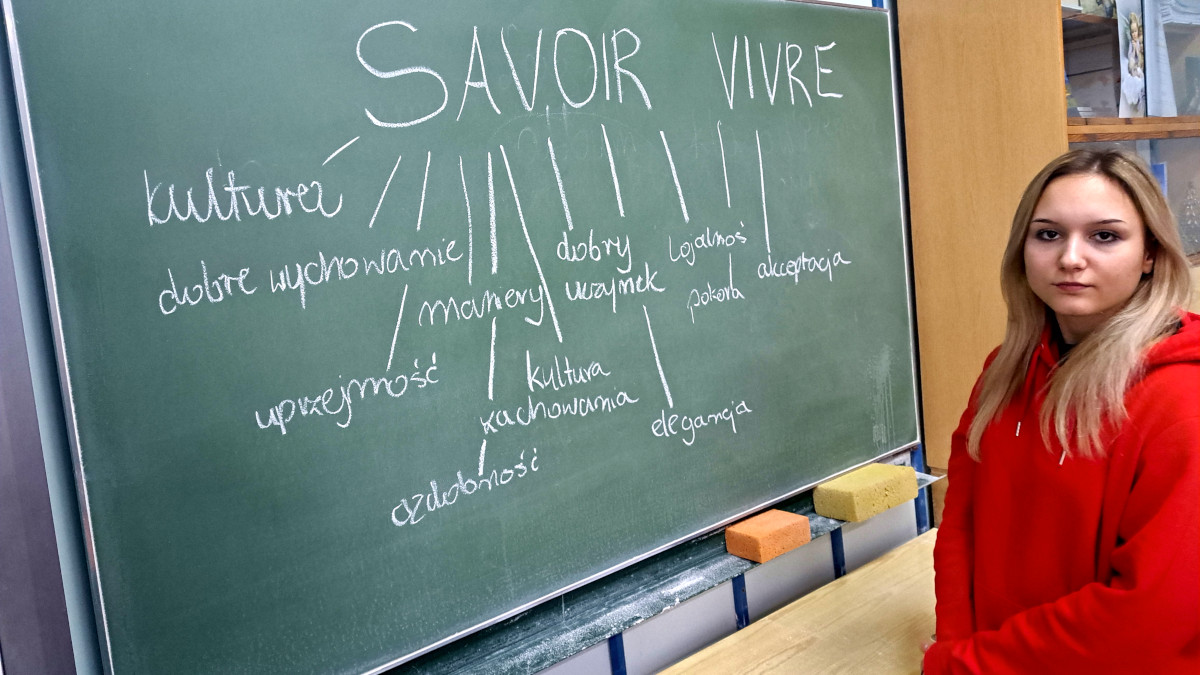 SAVOIR VIVRE
kultura
dobre wychowanie
maniery
dobry
uczynek
Lojalnoś
pokora
akceptacja
uprzejmość
kultura
zachowania
elegancja
ozdobność